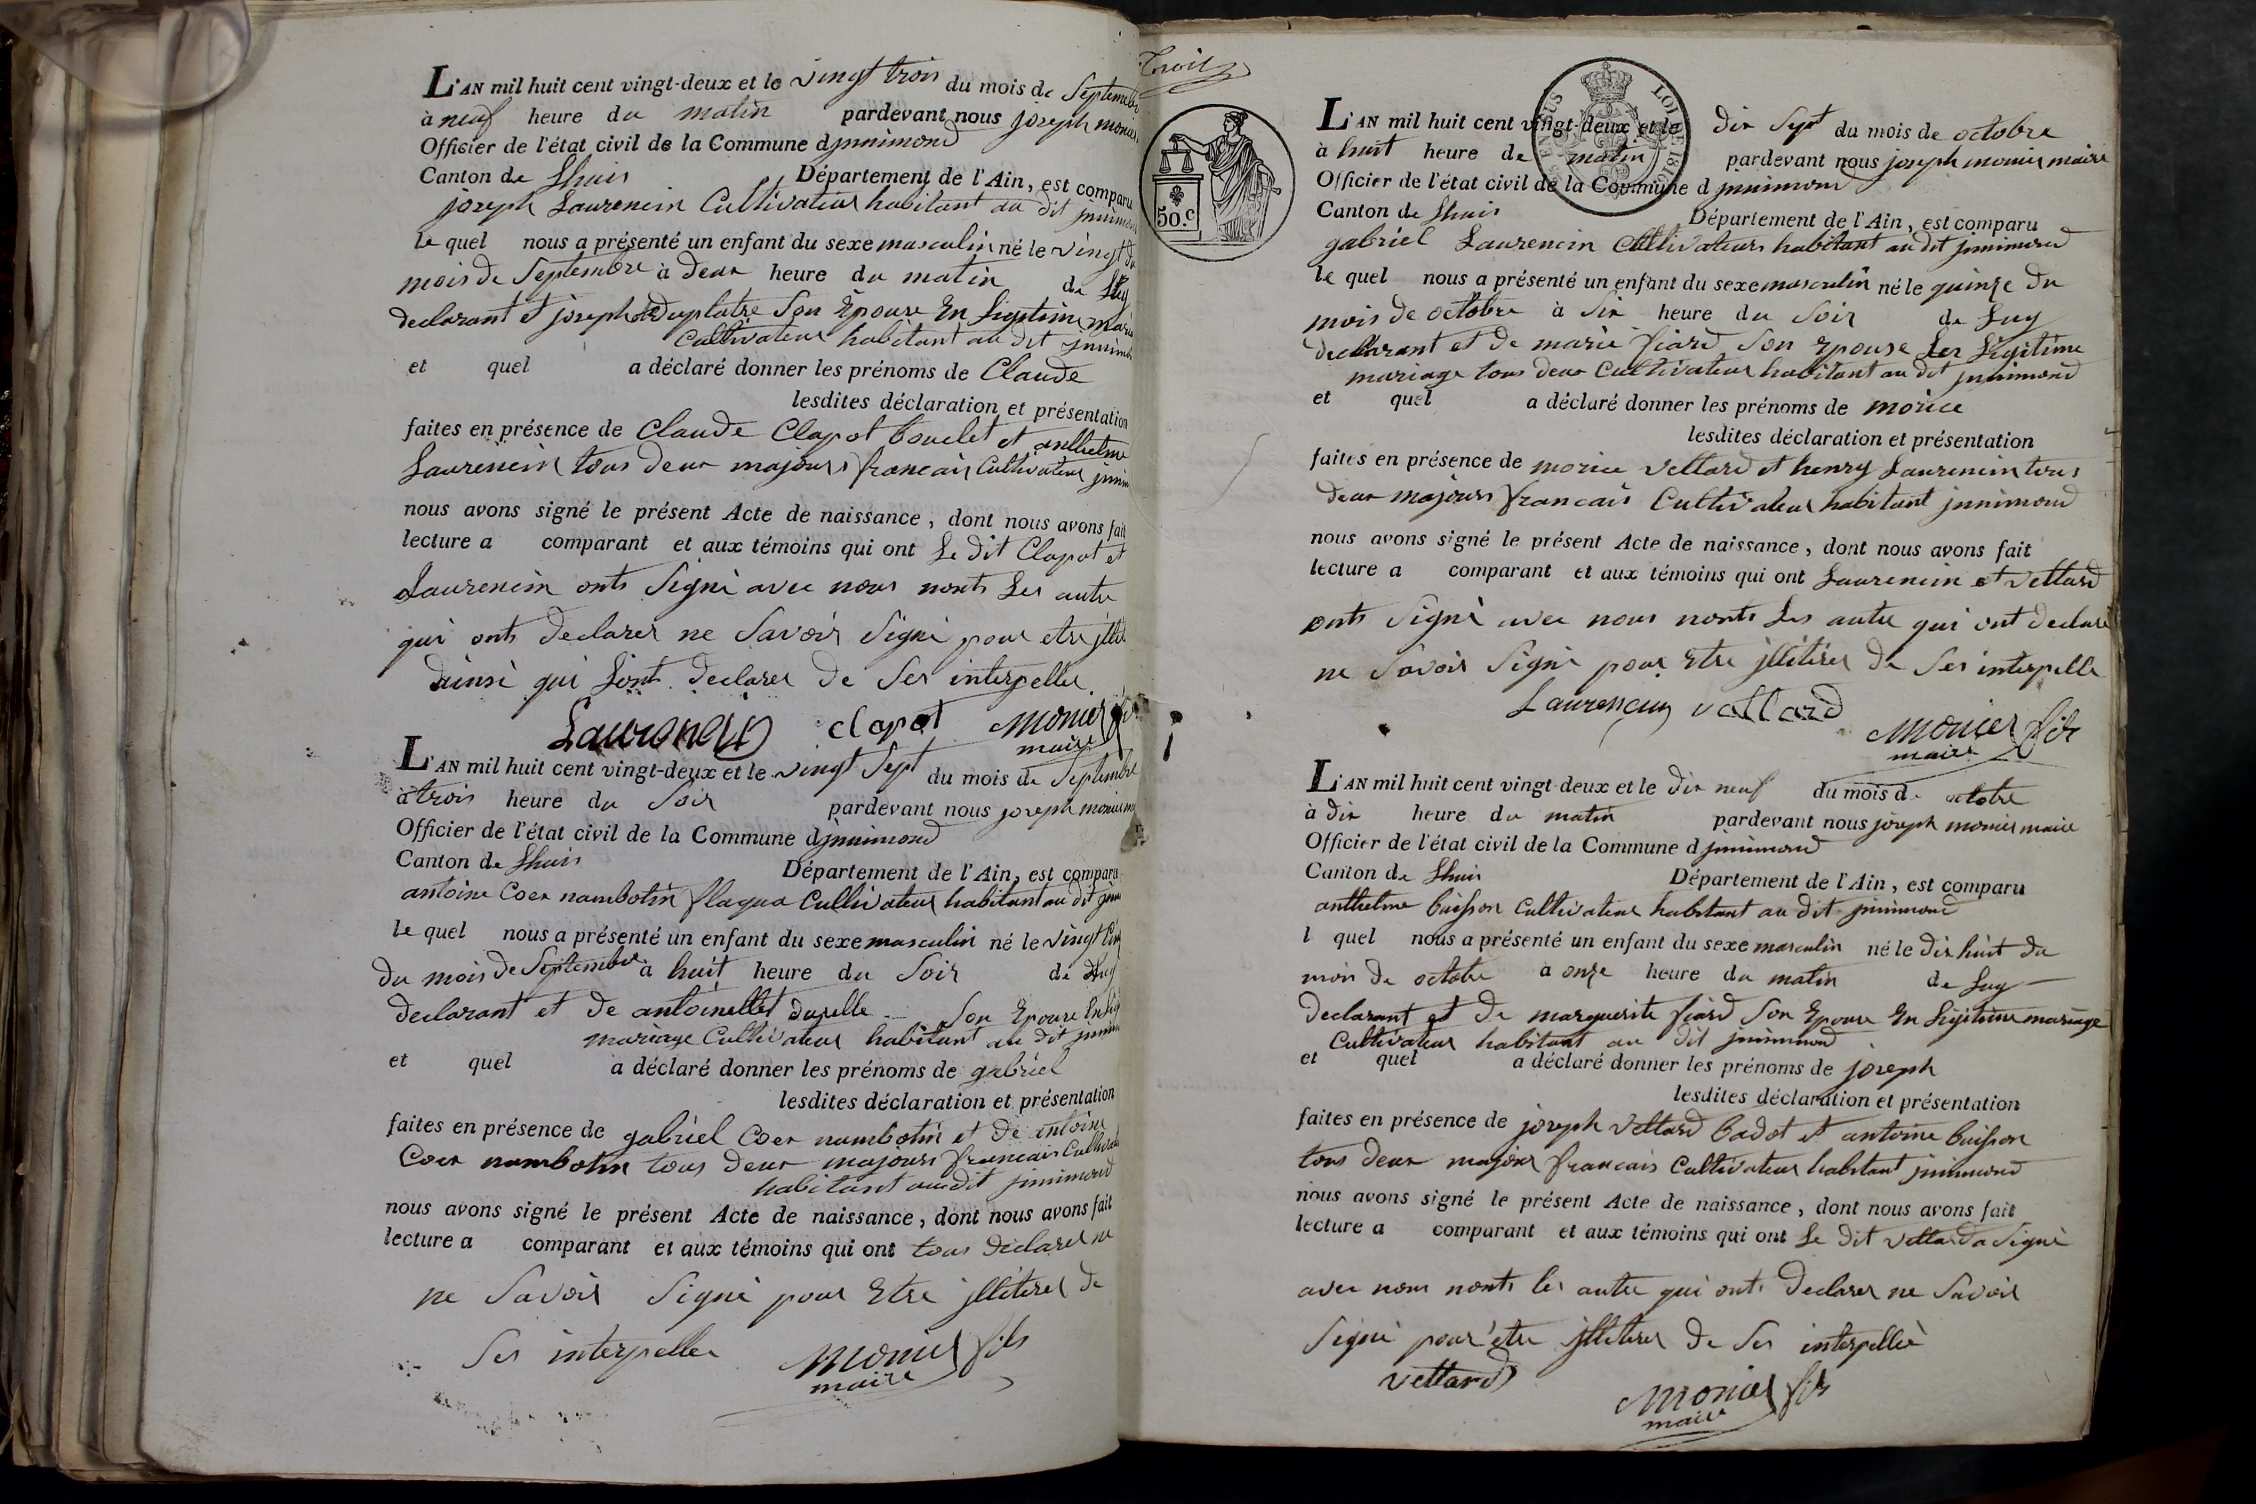 L'AN mil huit cent vingt-deux et le vingt trois du mois de Septembre
à neuf heure du matin pardevant nous joseph monier
Officier de l'état civil de la Commune d jnnimond
Canton de Lhuis Département de l'Ain, est comparu
joseph Laurencin Cultivateur habitant au dit jnnimond
le quel nous a présenté un enfant du sexe masculin né le vingt du
mois de Septembre à deux heure du matin de Luy
declarant et joseph Duplatre Son Epouse EnLigitime maria
Cultivateur habitant au dit jnnimond
et quel a déclaré donner les prénoms de Claude
lesdites déclaration et présentation
faites en présence de Claude Clapot bouclet et anthelme
Laurencin tous deux majours francais Cultivateur jnnim
nous avons signé le présent Acte de naissance, dont nous avons fait
lecture a comparant et aux témoins qui ont Le dit Clapot et
Laurencin onts Signé avec nous nonts Les autre
qui onts declarer ne Savoir Signé pour etre jllit
dainsi qui Lont declarer de Ses interpeller
Laurencin clapot monier fils
maire
L'AN mil huit cent vingt-deux et le vingt Sept du mois de Septembre
à trois heure du Soir pardevant nous joseph monier m
Officier de l'état civil de la Commune d jnnimond
Canton de Lhuis Département de l'Ain, est comparu
antoine Coex nambotin flaqua Cultivateur habitant au dit jnn
le quel nous a présenté un enfant du sexe masculin né le vingt Cinq
du mois de Septembre à huit heure du Soir de Luy
declarant et de antoinettet durelle Son Epouse En Lig
mariage Cultivateur habitant au dit jnnim
et quel a déclaré donner les prénoms de gabriel
lesdites déclaration et présentation
faites en présence de gabriel Coex nambotin et de antoine
Coex nambotin tous deux majours francais Cultivat
habitant au dit jnnimond
nous avons signé le présent Acte de naissance, dont nous avons fait
lecture a comparant et aux témoins qui ont tous declarer ne
ne Savoir Signé pour Etre jllitirer de
Ses interpeller monier fils
maire
Troit
50.c
L'AN mil huit cent vingt-deux et le dix Sept du mois de octobre
à huit heure de matin pardevant nous joseph monier maire
Officier de l'état civil de la Commune d jnnimond
Canton de Lhuis Département de l'Ain, est comparu
gabriel Laurencin Cultivateurs habitant au dit jnnimond
le quel nous a présenté un enfant du sexe masculin né le quinze du
mois de octobre à Six heure du Soir de Luy
declarant et de marie fiard Son Epouse Len Ligitime
mariage tous deux Cultivateur habitant au dit jnnimond
et quel a déclaré donner les prénoms de morice
lesdites déclaration et présentation
faites en présence de morice vettard et henry Laurencin tous
deux majours francais Cultivateur habitant jnnimond
nous avons signé le présent Acte de naissance, dont nous avons fait
lecture a comparant et aux témoins qui ont Laurencin et vettard
onts Signé avec nous nonts Les autre qui ont declaré
ne Savoir Signé pour Etre jllitirer de Ses interpelle
Laurencin vettard
monier fils
maire
L'AN mil huit cent vingt-deux et le dix neuf du mois d octobre
à dix heure du matin pardevant nous joseph monier maire
Officier de l'état civil de la Commune d jnnimond
Canton de Lhuis Département de l'Ain, est comparu
anthelme buisson Cultivateur habitant au dit jnnimond
l quel nous a présenté un enfant du sexe masculin né le dix huit du
mois de octobre à onze heure du matin de Luy
declarant et de marguerite fiard Son Epouse En Ligitime mariage
Cultivateur habitant au dit jnnimond
et quel a déclaré donner les prénoms de joseph
lesdites déclaration et présentation
faites en présence de joseph vettard badot et antoine buisson
tous deux majour francais Cultivateur habitant jnnimond
nous avons signé le présent Acte de naissance, dont nous avons fait
lecture a comparant et aux témoins qui ont Le dit vettard a Signé
avec nous nonts les autre qui onts declarer ne Savoir
Signé pour etre jllitirer de Ses interpellé
vettard
monier fils
maire